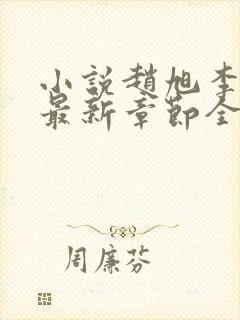 小説趙旭李
最新章節全
周廉芬